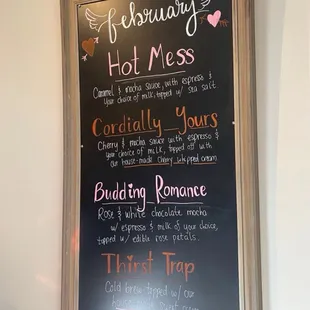 february
Hot Mess
Caramel & mocha sauce, with espresso &
your choice of milk, topped w/ sea salt
Cordially Yours
Cherry & mocha sauce with espresso &
your choice of milk, topped off with
our house-made Cherry whipped cream
Budding Romance
Rose & white chocolate mocha
w/ espresso & milk of your choice,
topped w/ edible rose petals.
Thirst Trap
Cold brew topped w/ our
house